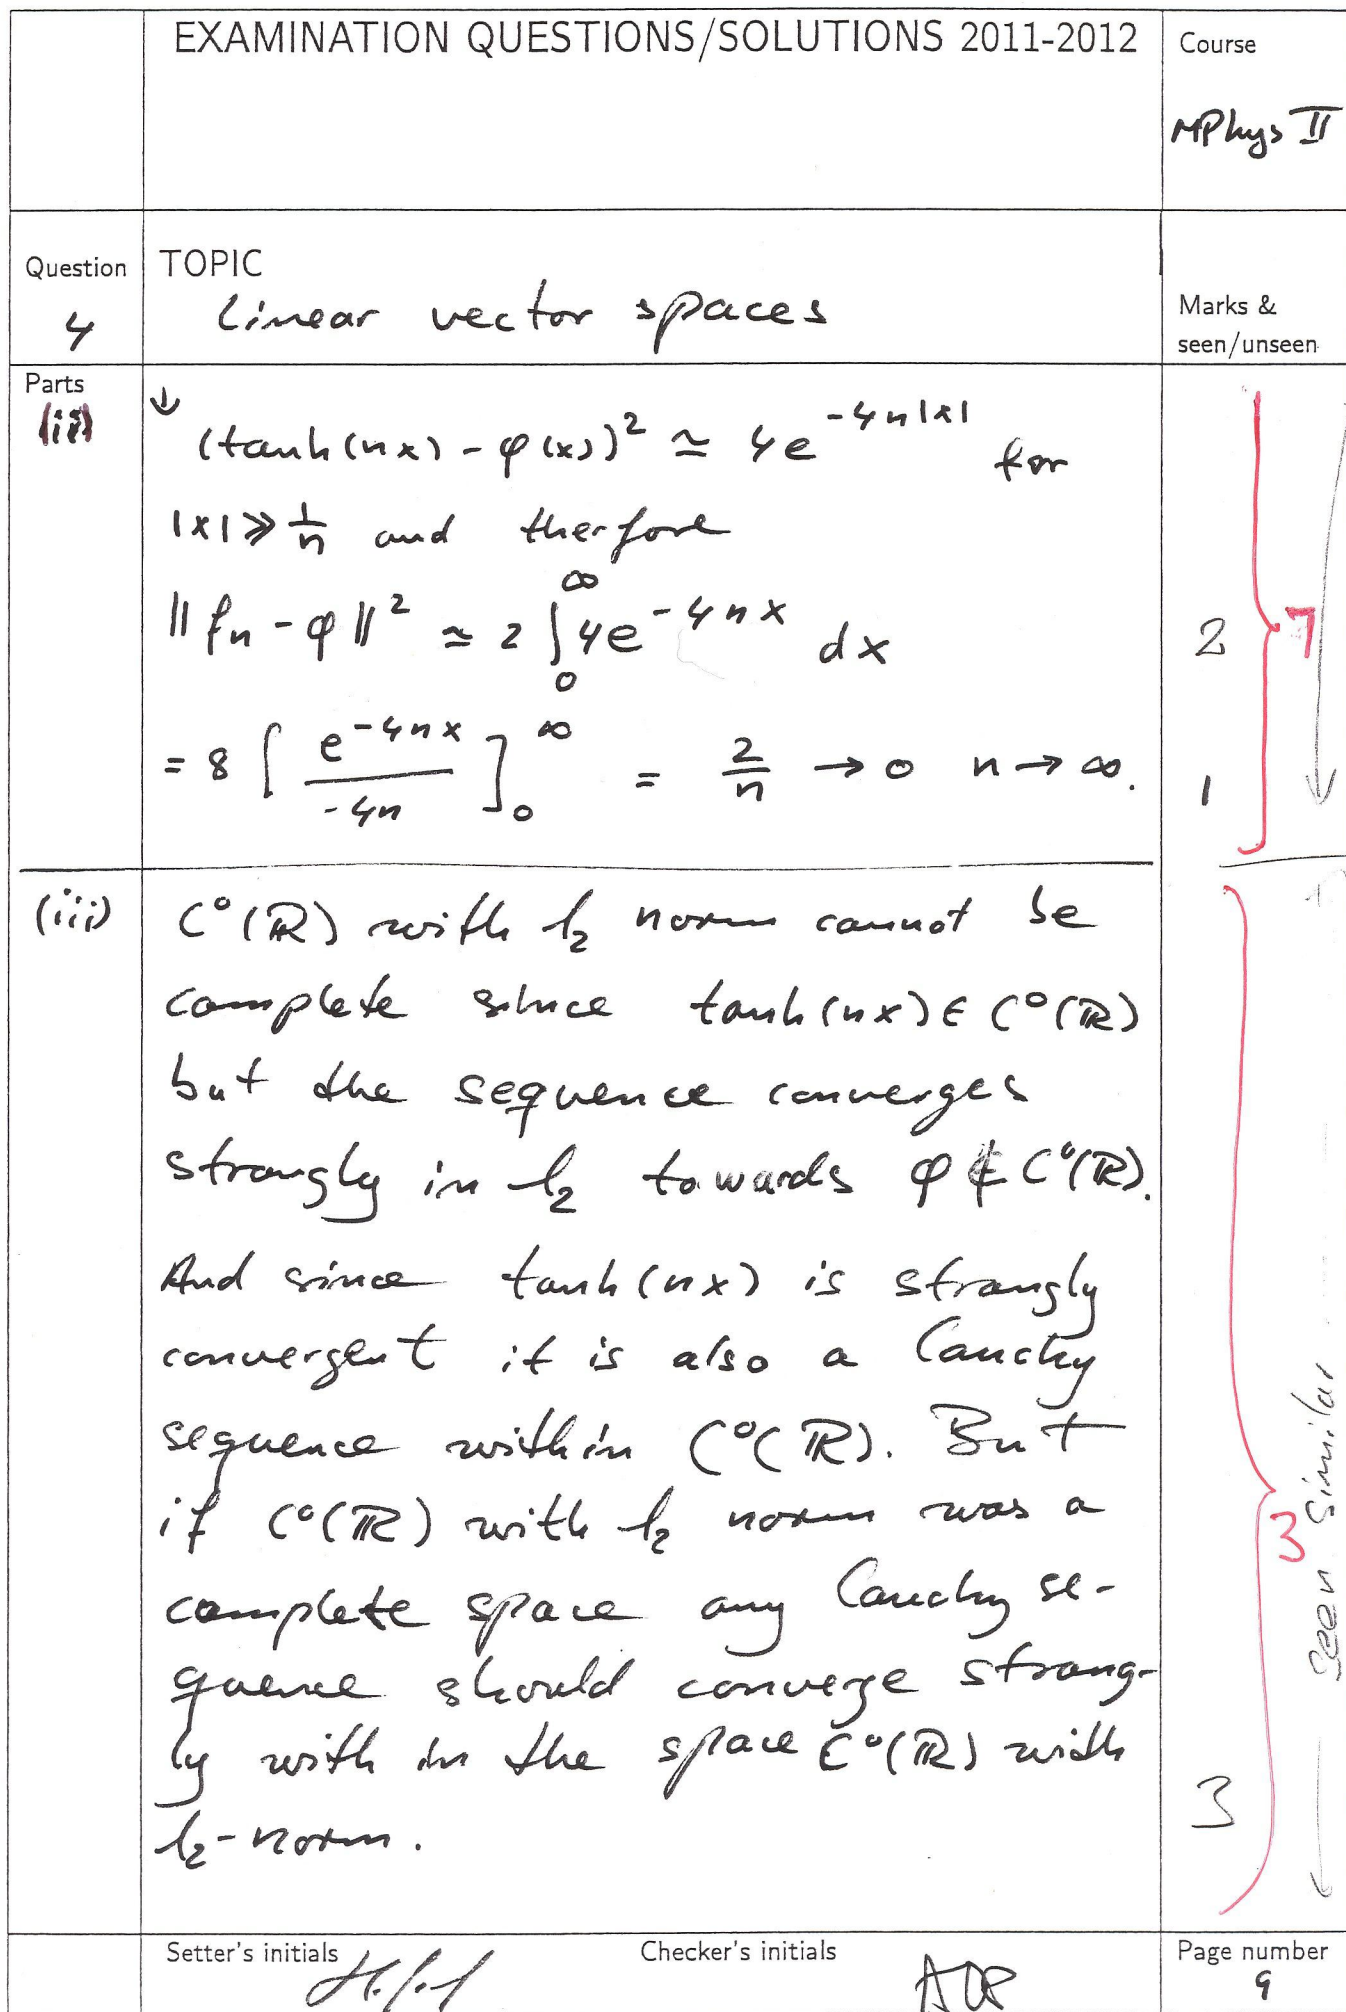 EXAMINATION QUESTIONS/SOLUTIONS 2011-2012
Course
MPhys II
Question
4
TOPIC
Linear vector spaces
Marks &
seen/unseen
Parts
(ii)
↓
(tanh(nx) - φ(x))² ≃ 4e^{-4n|x|} for
|x| ≫ 1/n and therfore
‖fn - φ‖² ≃ 2 ∫₀^∞ 4e^{-4nx} dx
2
7
= 8 [ e^{-4nx} / -4n ]₀^∞ = 2/n → 0 n → ∞.
1
(iii)
C⁰(ℝ) with l₂ norm cannot be
complete since tanh(nx) ∈ C⁰(ℝ)
but the sequence converges
strongly in l₂ towards φ ∉ C⁰(ℝ).
And since tanh(nx) is strongly
convergent it is also a Cauchy
sequence within C⁰(ℝ). But
if C⁰(ℝ) with l₂ norm was a
complete space any Cauchy se-
quence should converge strong-
ly with in the space C⁰(ℝ) with
l₂-norm.
3
3
Seen Similar
Setter's initials
Checker's initials
Page number
9